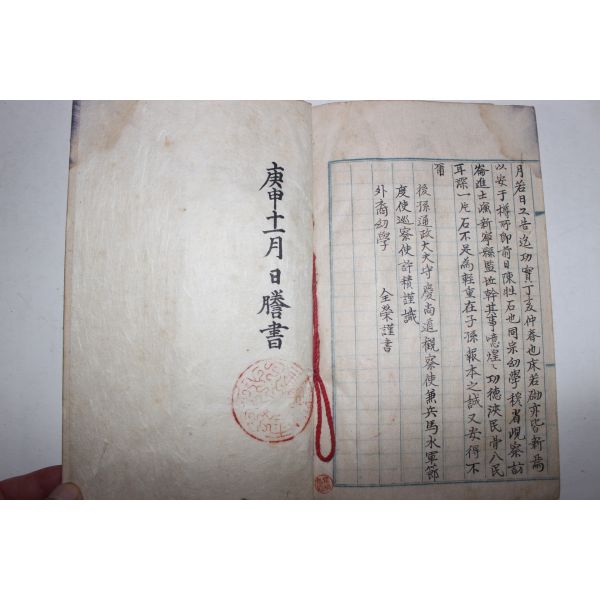 月若日又告迄功實丁亥仲春也床若砌亦皆新焉
以安于樽所卽前日陳牲石也同宗幼學穆省覌察訪
崙進士渢新寧縣監 幹其事噫煌〻功德浹民骨八民
耳深一片石不足為輕重在子孫報本之誠又安得不
爾
後孫通政大夫守慶尚道觀察使兼兵馬水軍節
度使巡察使許積謹識
外裔幼學 全榮謹書
庚申十一月 日謄書